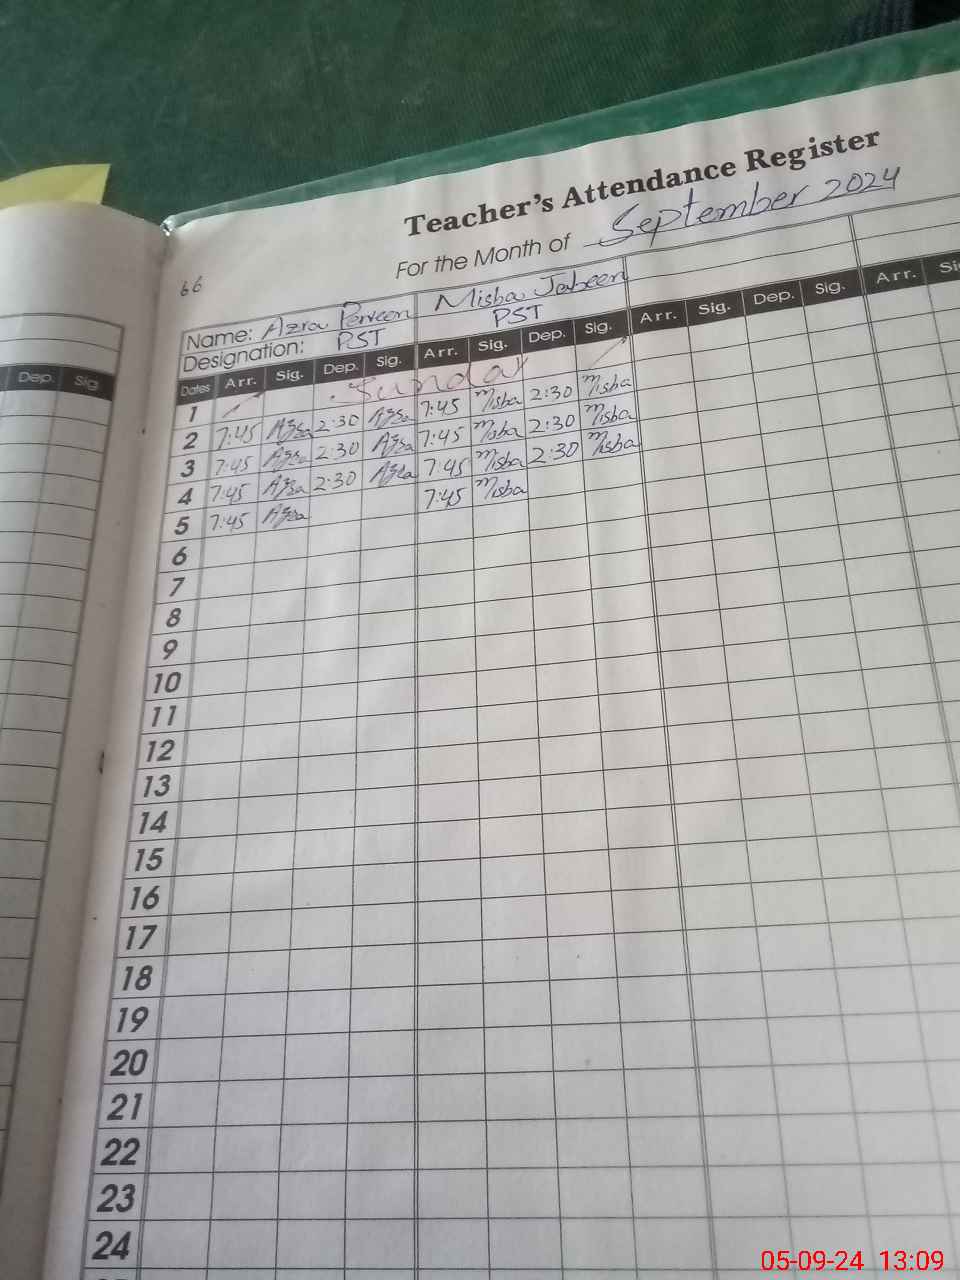 Teacher's Attendance Register
For the Month of September 2024
66
Name: Azra Perveen Misba Jabeen
Designation: PST PST
Dep. Sig
Dates Arr. Sig. Dep. Sig. Arr. Sig. Dep. Sig. Arr. Sig. Dep. Sig. Arr. Si
1 Sunday
2 7:45 Azra 2:30 Azra 7:45 Misba 2:30 Misba
3 7:45 Azra 2:30 Azra 7:45 Misba 2:30 Misba
4 7:45 Azra 2:30 Azra 7:45 Misba 2:30 Misba
5 7:45 Azra 7:45 Misba
6
7
8
9
10
11
12
13
14
15
16
17
18
19
20
21
22
23
24
05-09-24 13:09